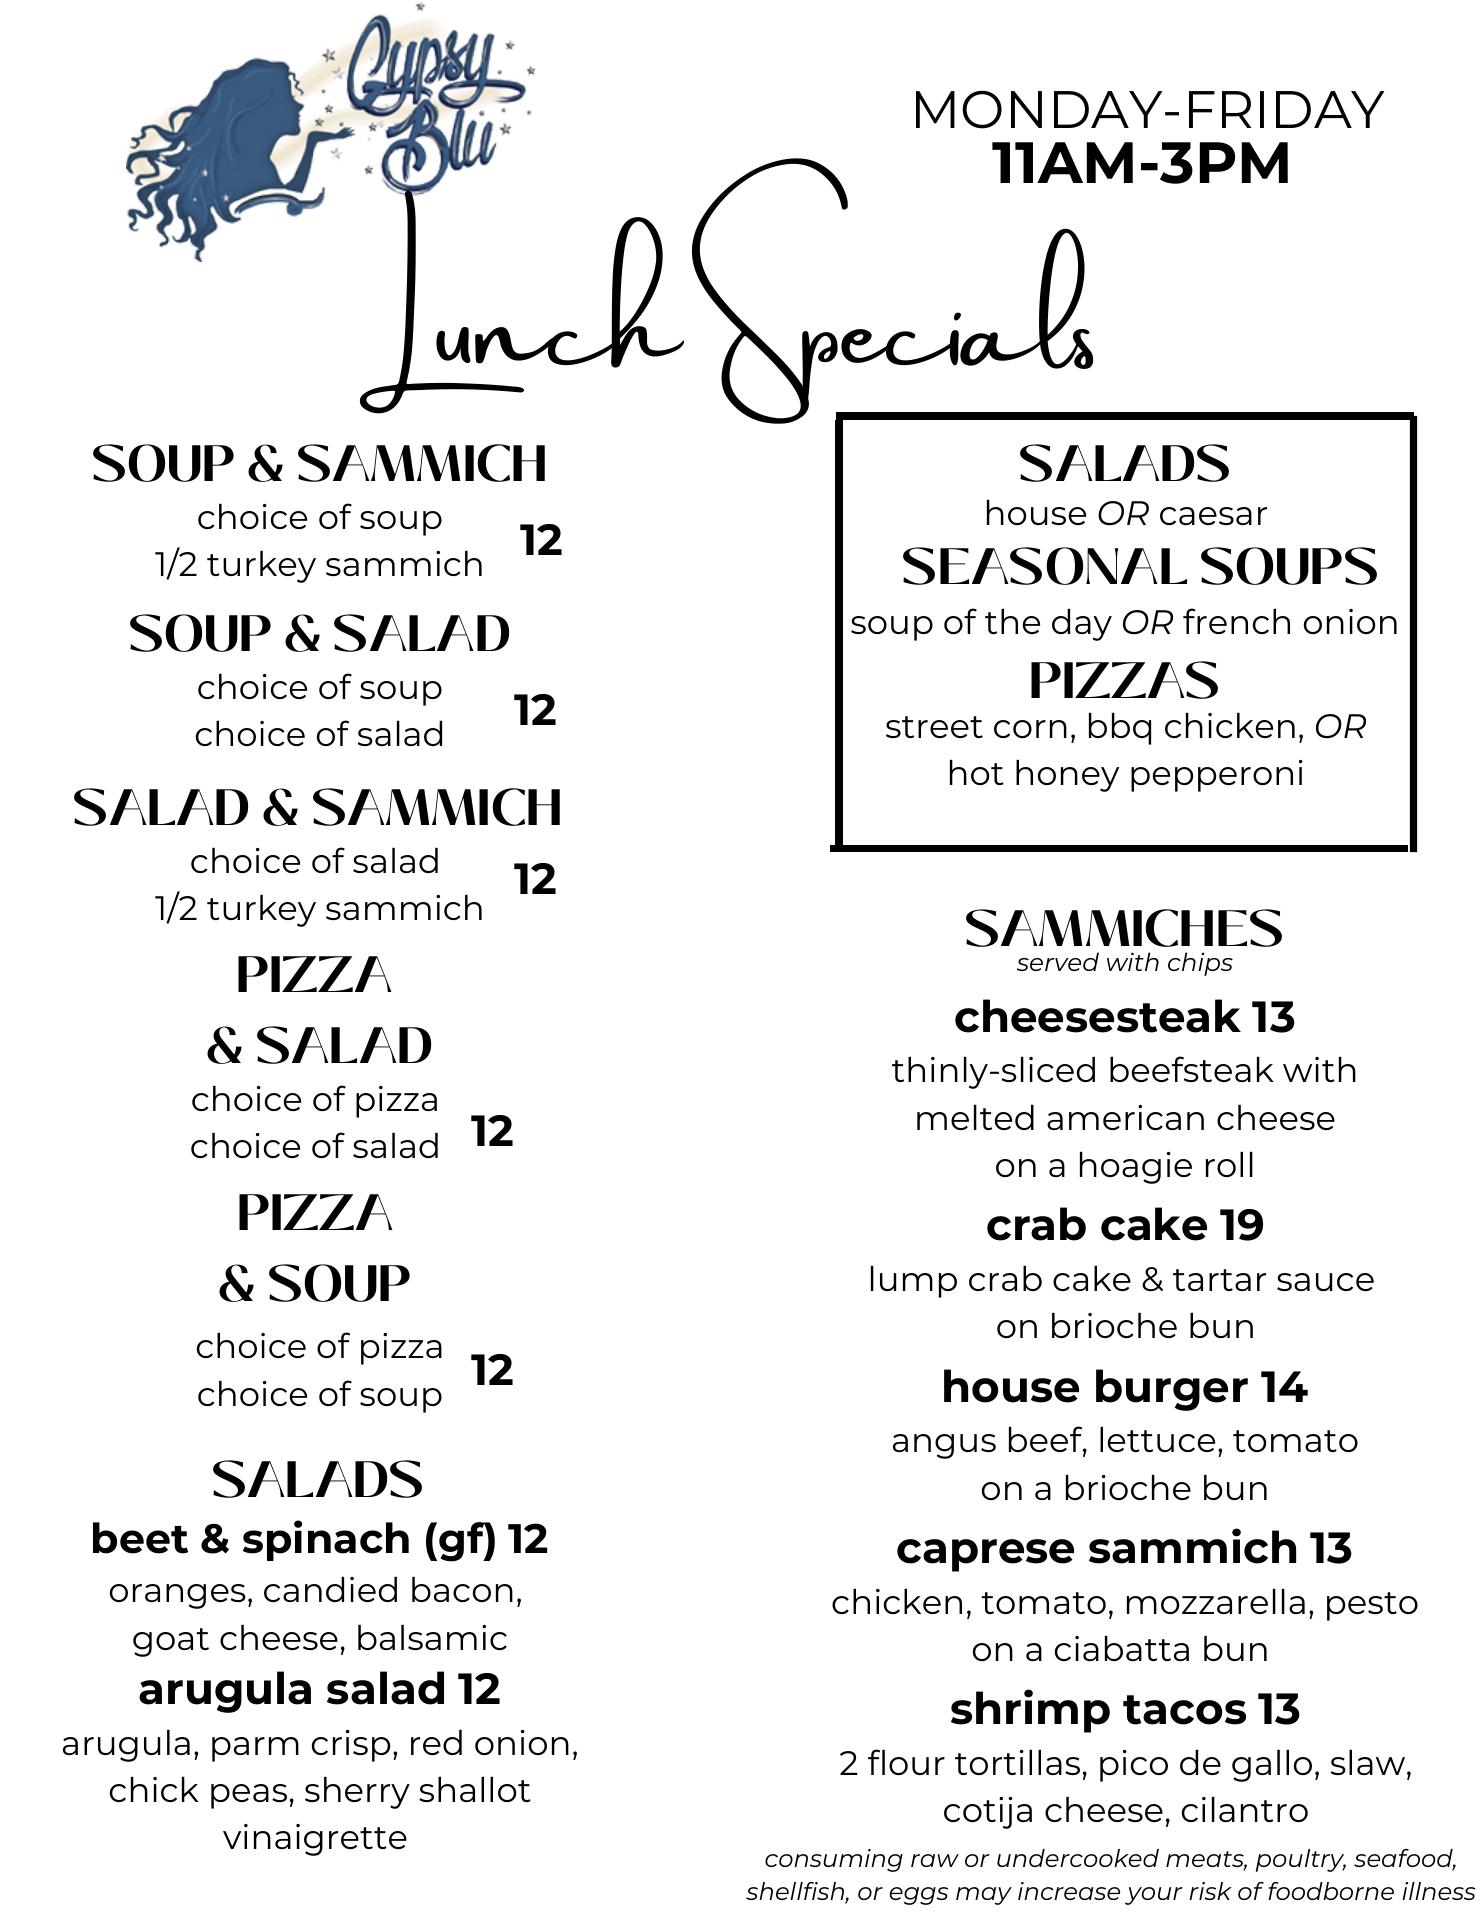 Gypsy
Blu
MONDAY-FRIDAY
11AM-3PM
Lunch Specials
SOUP & SAMMICH
choice of soup
1/2 turkey sammich
12
SOUP & SALAD
choice of soup
choice of salad
12
SALAD & SAMMICH
choice of salad
1/2 turkey sammich
12
PIZZA
& SALAD
choice of pizza
choice of salad
12
PIZZA
& SOUP
choice of pizza
choice of soup
12
SALADS
beet & spinach (gf) 12
oranges, candied bacon,
goat cheese, balsamic
arugula salad 12
arugula, parm crisp, red onion,
chick peas, sherry shallot
vinaigrette
SALADS
house OR caesar
SEASONAL SOUPS
soup of the day OR french onion
PIZZAS
street corn, bbq chicken, OR
hot honey pepperoni
SAMMICHES
served with chips
cheesesteak 13
thinly-sliced beefsteak with
melted american cheese
on a hoagie roll
crab cake 19
lump crab cake & tartar sauce
on brioche bun
house burger 14
angus beef, lettuce, tomato
on a brioche bun
caprese sammich 13
chicken, tomato, mozzarella, pesto
on a ciabatta bun
shrimp tacos 13
2 flour tortillas, pico de gallo, slaw,
cotija cheese, cilantro
consuming raw or undercooked meats, poultry, seafood,
shellfish, or eggs may increase your risk of foodborne illness